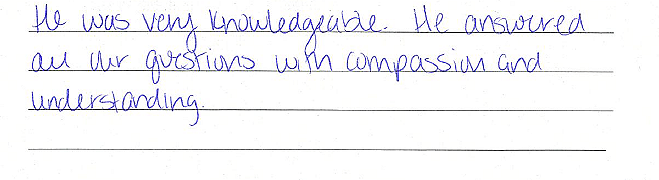 He was very knowledgeable. He answered
all our questions with compassion and
understanding.